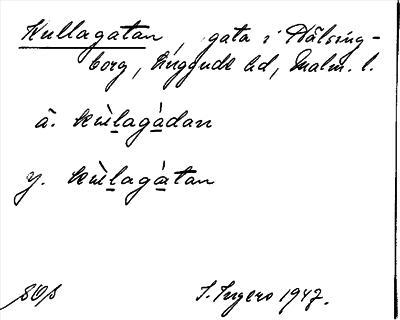 Kullagatan, gata i Hälsing-
borg, Luggude hd, Malm. l.
ä. kùlagádan
y. kùlagátan
SOs
I. Ingers 1947.